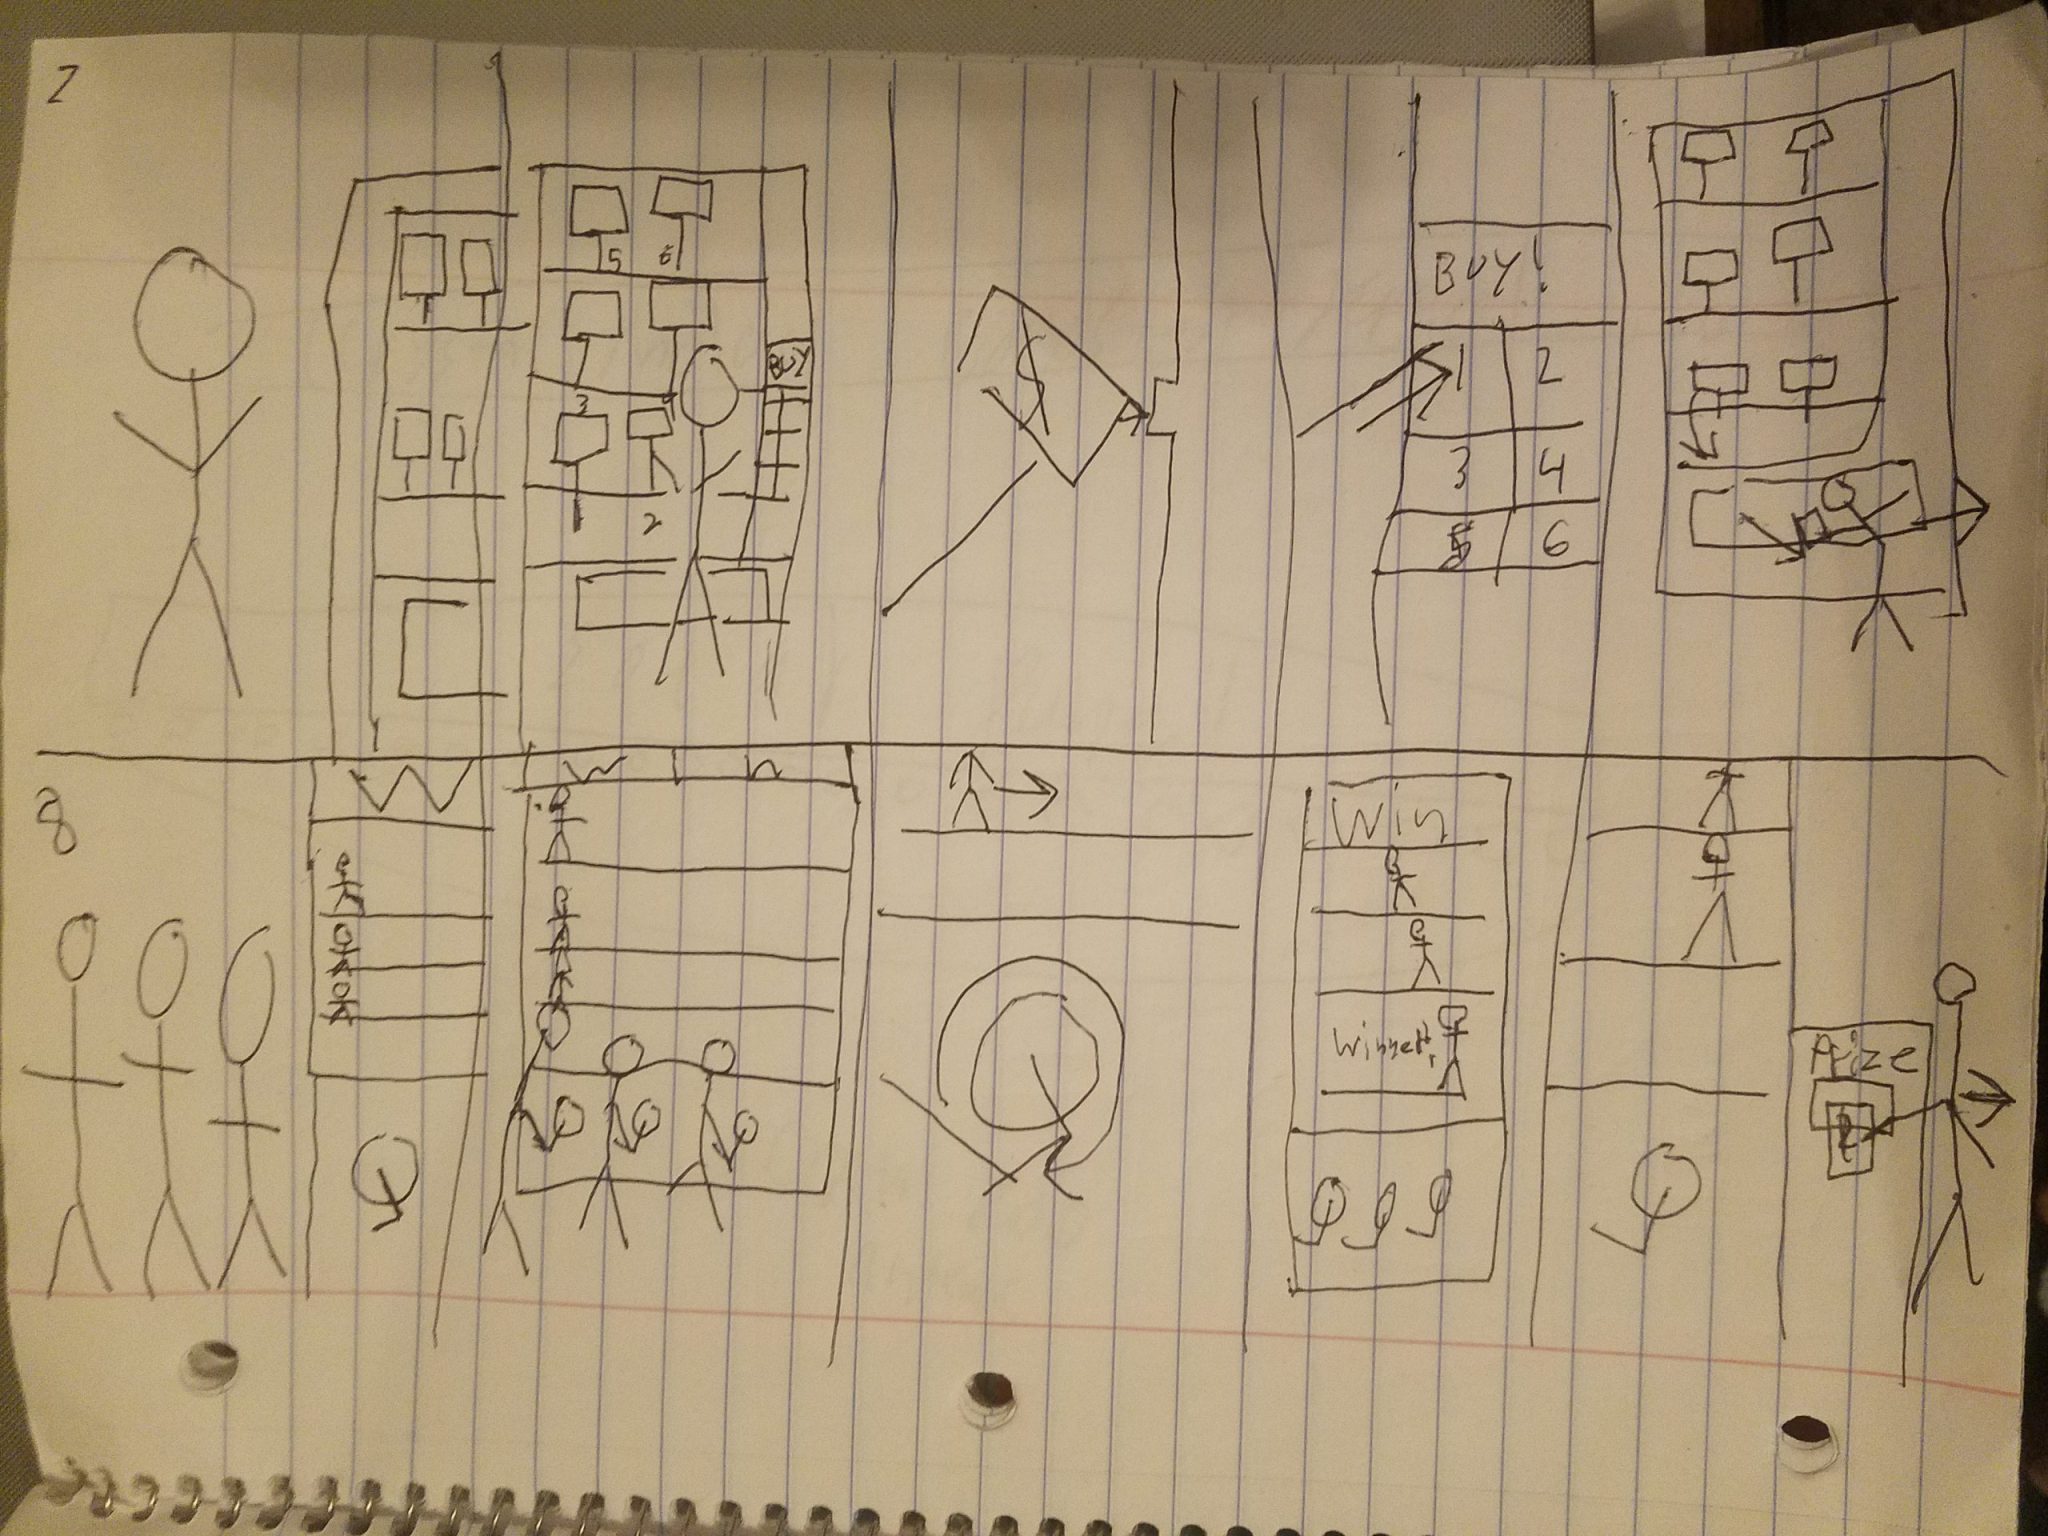 7
5 6
3
BUY
1 2
$
BUY!
1 2
3 4
5 6
8
W
W I n
Win
Winner!
Prize
2